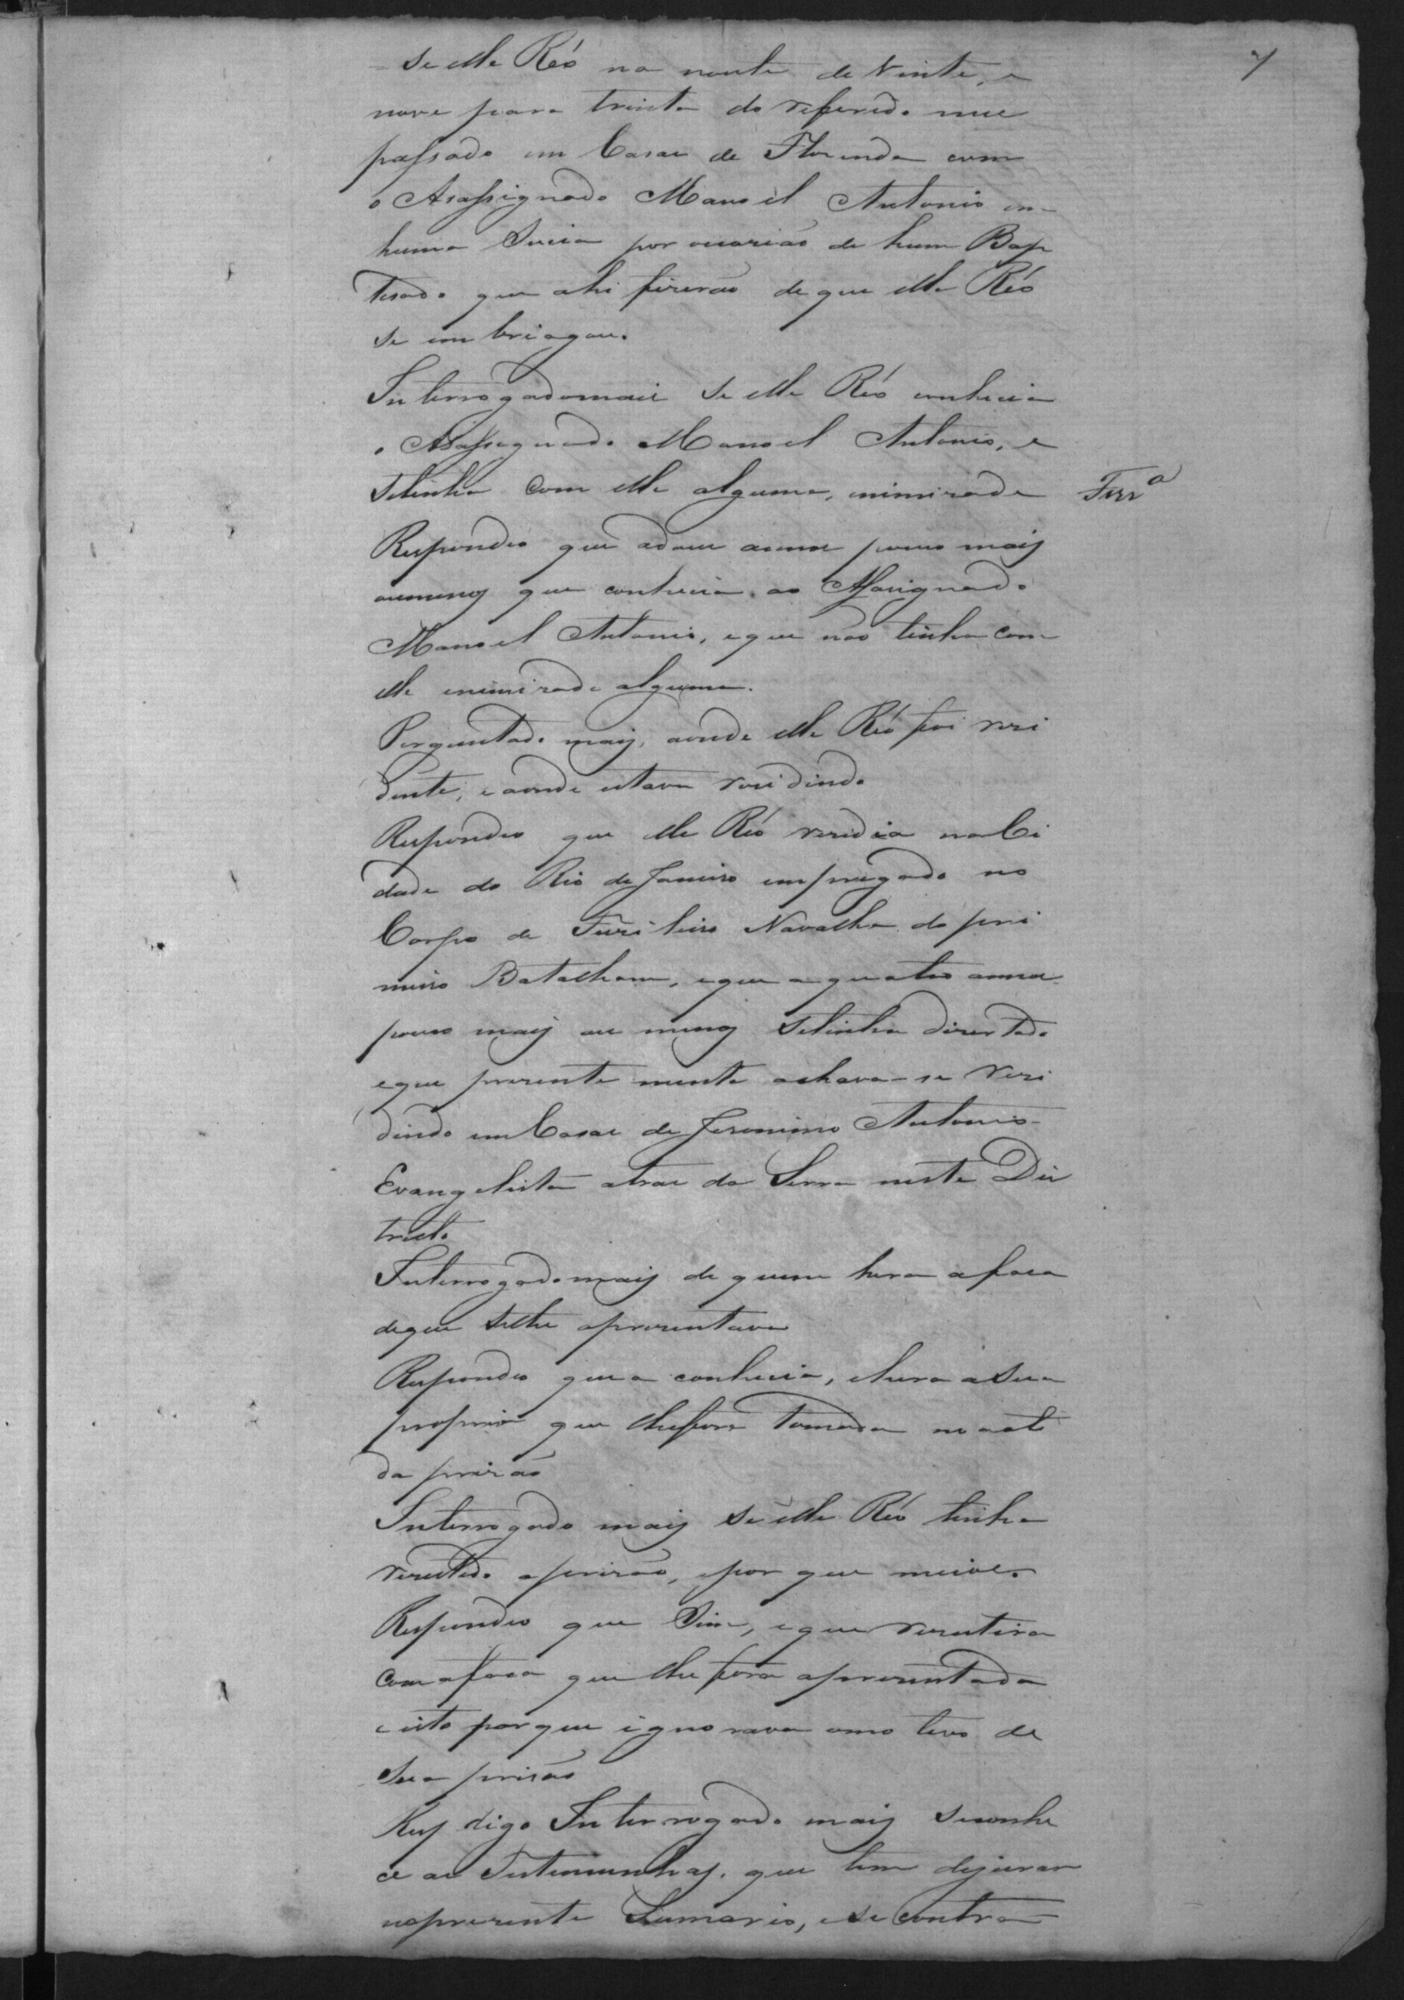 7
se elle Réo na noute de Vinte, e
nove para trinta do referido mez
passado em Casas de Florinda com
o Asassignado Manoel Antonio em
huma Sucia por ocazião de hum Bap
tisado que ahi fizerão de que elle Réo
se embriagou.
Interrogado mais se elle Réo conhecia
o Asassignado Manoel Antonio, e
setinha com elle alguma, inimizade
Ferrª
Respondeo que a dous annos pouco mais
oumenos que conhecia, ao Assacignado
Manoel Antonio, e que não tinha com
elle inimizade alguma.
Perguntado mais, aonde elle Réo foi rezi
dente, e aonde estava rezidindo
Respondeo que elle Réo rezidia na Ci
dade do Rio de Janeiro empregado no
Corpo de Fuzileiro Navalha do pri
meiro Batalham, e que a quatro annos
pouco mais ou menos setinha dizertado
e que prezente mente achava-se rezi
dindo em Casas de Jeronimo Antonio
Evangelista atraz da Serra neste Dis
tricto
Interrogado mais de quem hera a faca
deque selhe aprezentava
Respondeo que a conhecia, e hera a Sua
propria que lhe fora tomada no acto
da prizão
Interrogado mais Se elle Réo tinha
rezistido a prizão, e por que motivo
Respondeo que Sim, e que rezistira
com a faca que lhe fora aprezentada
e isto porque ignorava o motivo de
Sua prizão
Resp digo Interrogado mais Seconhe
ce as Testemunhas, que tem dejurar
no prezente Sumario, e se contra